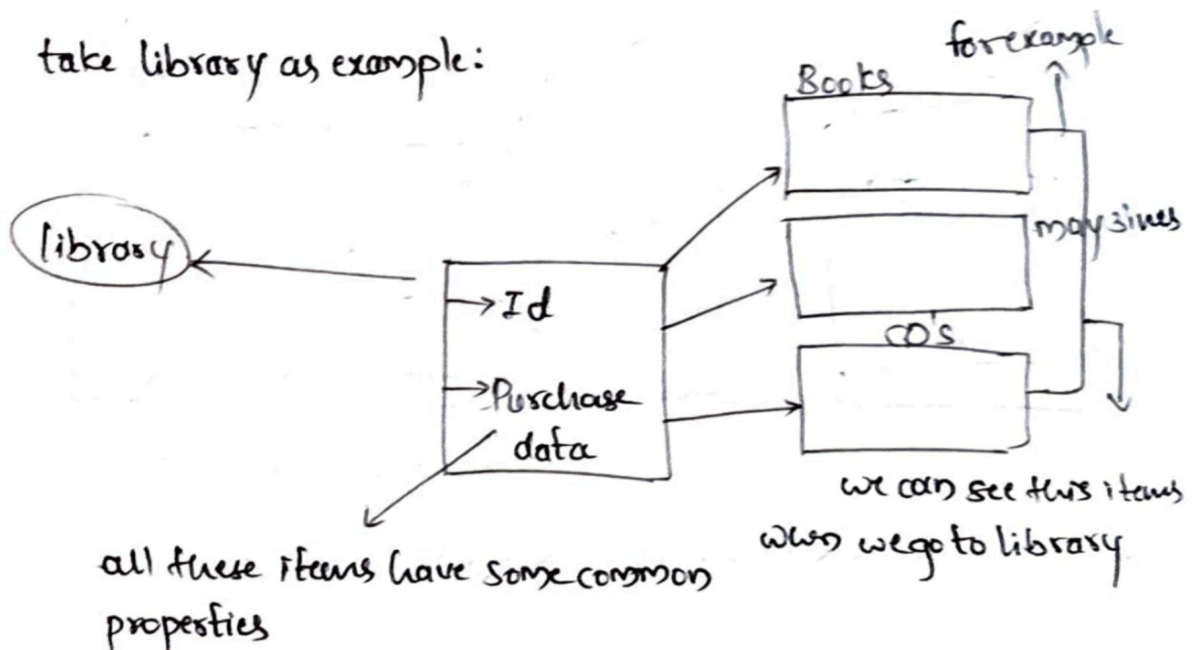 take library as example:
for example
Books
library
magzines
Id
CD's
Purchase
data
we can see this items
when we go to library
all these items have some common
properties